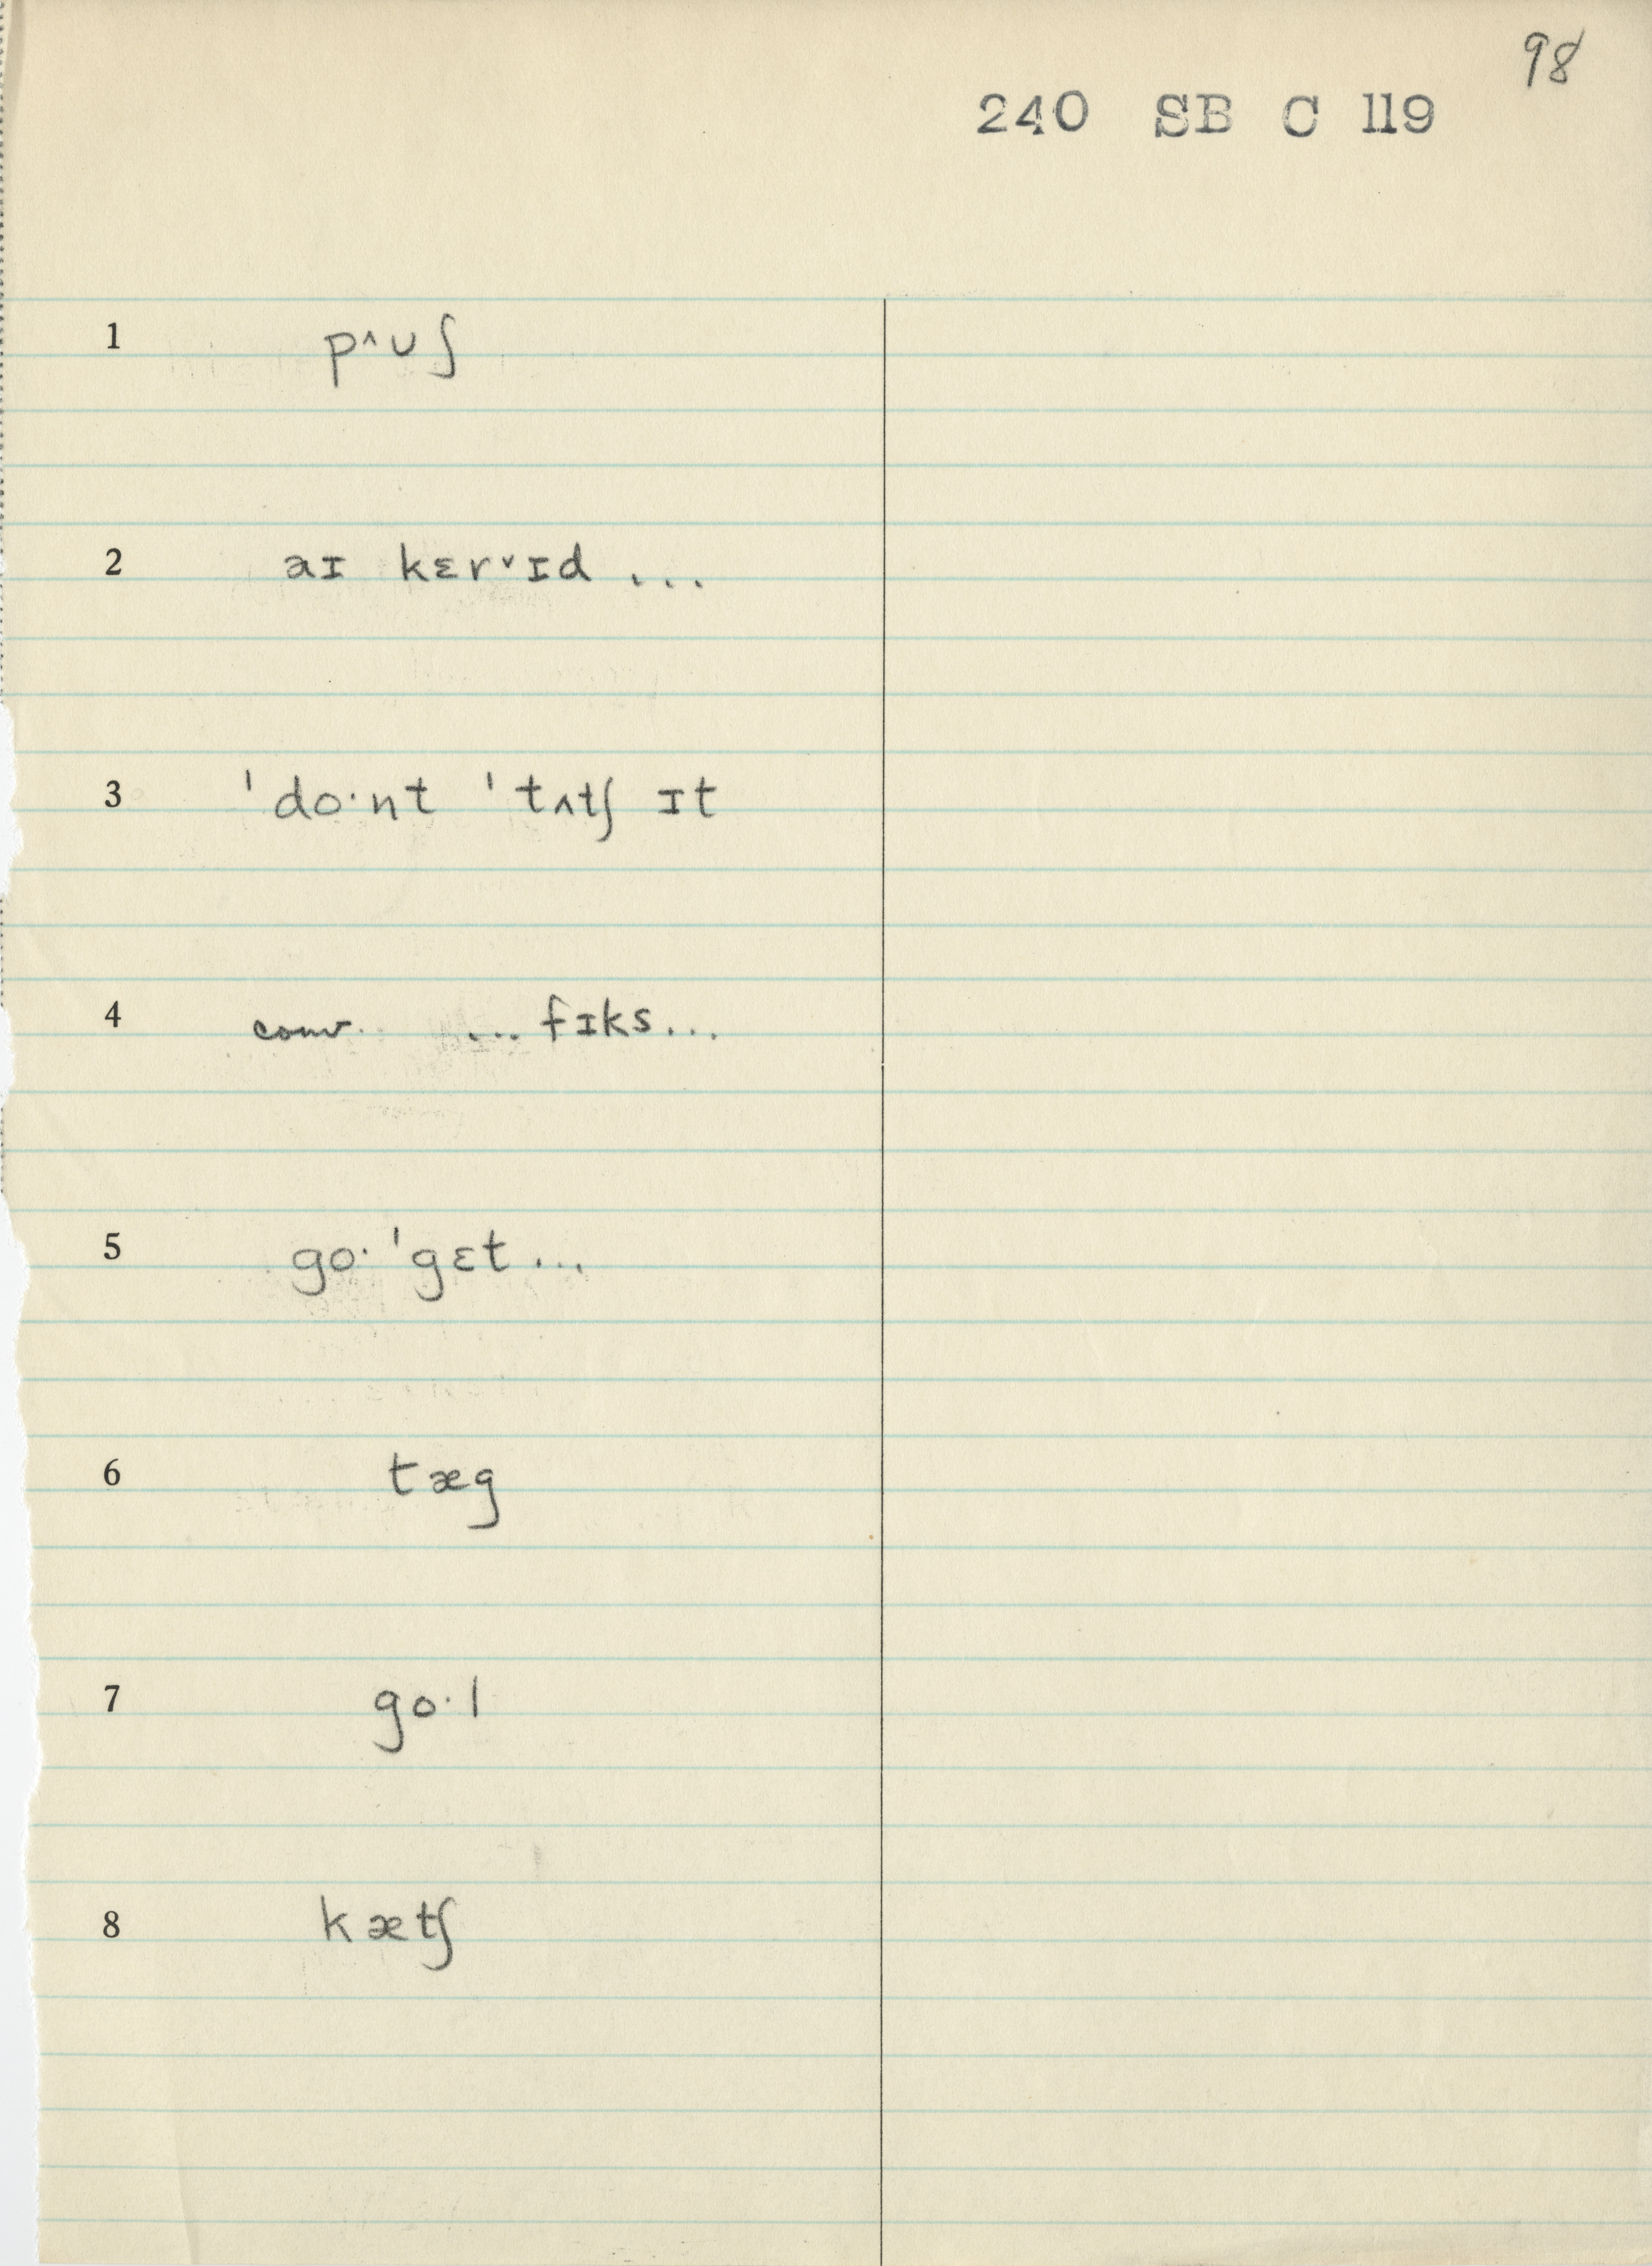 98
240 SB C 119
1 p^ʊʃ
2 aɪ kɛrˇɪd ...
3 ˈdo·nt ˈtʌtʃ ɪt
4 conv. ... fɪks...
5 go· ˈgɛt ...
6 tæg
7 go·l
8 kætʃ